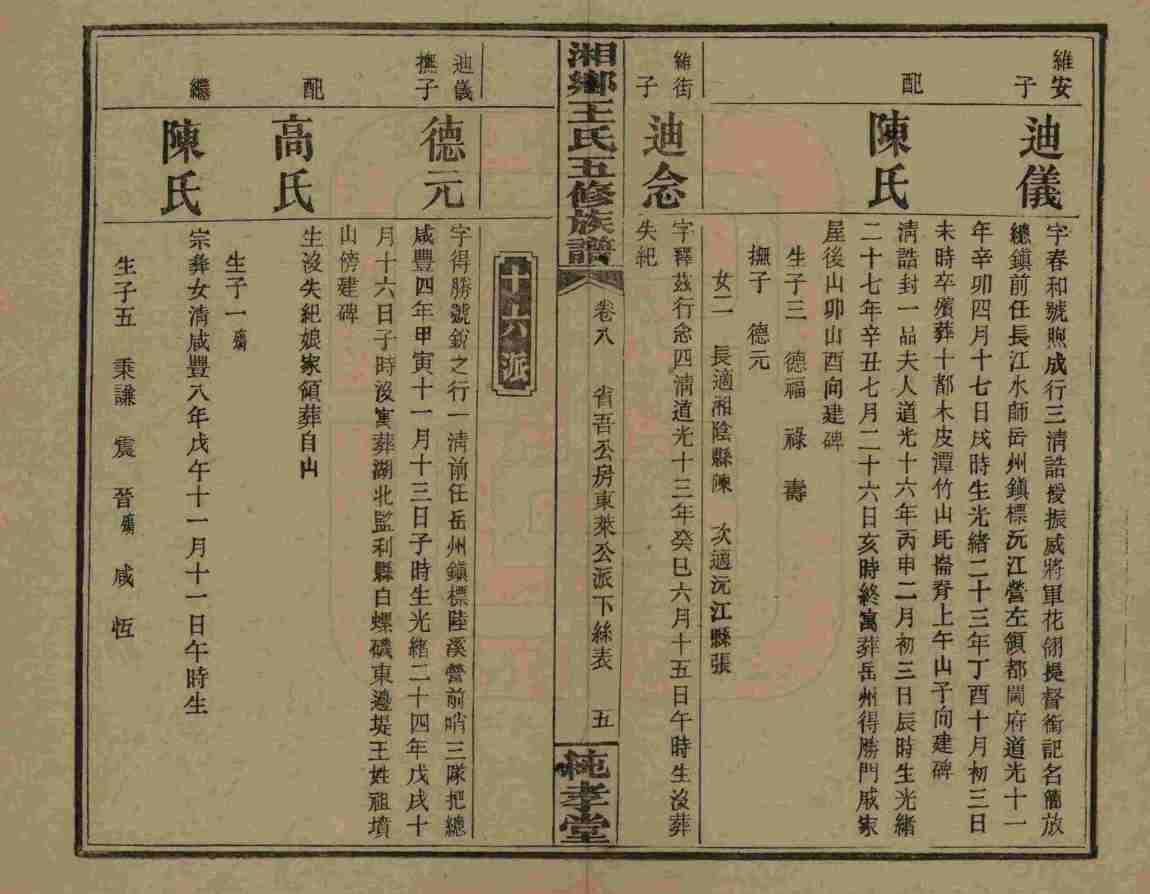 維安子
迪儀
字春和號煦成行三清誥授振威將軍花翎提督銜記名簡放
總鎮前任長江水師岳州鎮標沅江營左領都閫府道光十一
年辛卯四月十七日戌時生光緒二十三年丁酉十月初三日
未時卒殯葬十都木皮潭竹山坉崙脊上午山子向建碑
配
陳氏
清誥封一品夫人道光十六年丙申二月初三日辰時生光緒
二十七年辛丑七月二十六日亥時終寓葬岳州得勝門戚家
屋後山卯山酉向建碑
生子三 德福 祿 壽
撫子 德元
女二 長適湘陰縣陳 次適沅江縣張
維街子
迪念
字釋茲行念四清道光十三年癸巳六月十五日午時生沒葬
失紀
湘鄉王氏五修族譜
卷八 省吾公房東萊公派下絲表 五
純孝堂
十六派
迪儀撫子
德元
字得勝號銳之行一清前任岳州鎮標陸溪營前哨三隊把總
咸豐四年甲寅十一月十三日子時生光緒二十四年戊戌十
月十六日子時沒寓葬湖北監利縣白螺磯東邊堤王姓祖墳
山傍建碑
配
高氏
生沒失紀娘家領葬自山
生子一殤
繼
陳氏
宗彝女清咸豐八年戊午十一月十一日午時生
生子五 秉謙 震 晉殤 咸 恆